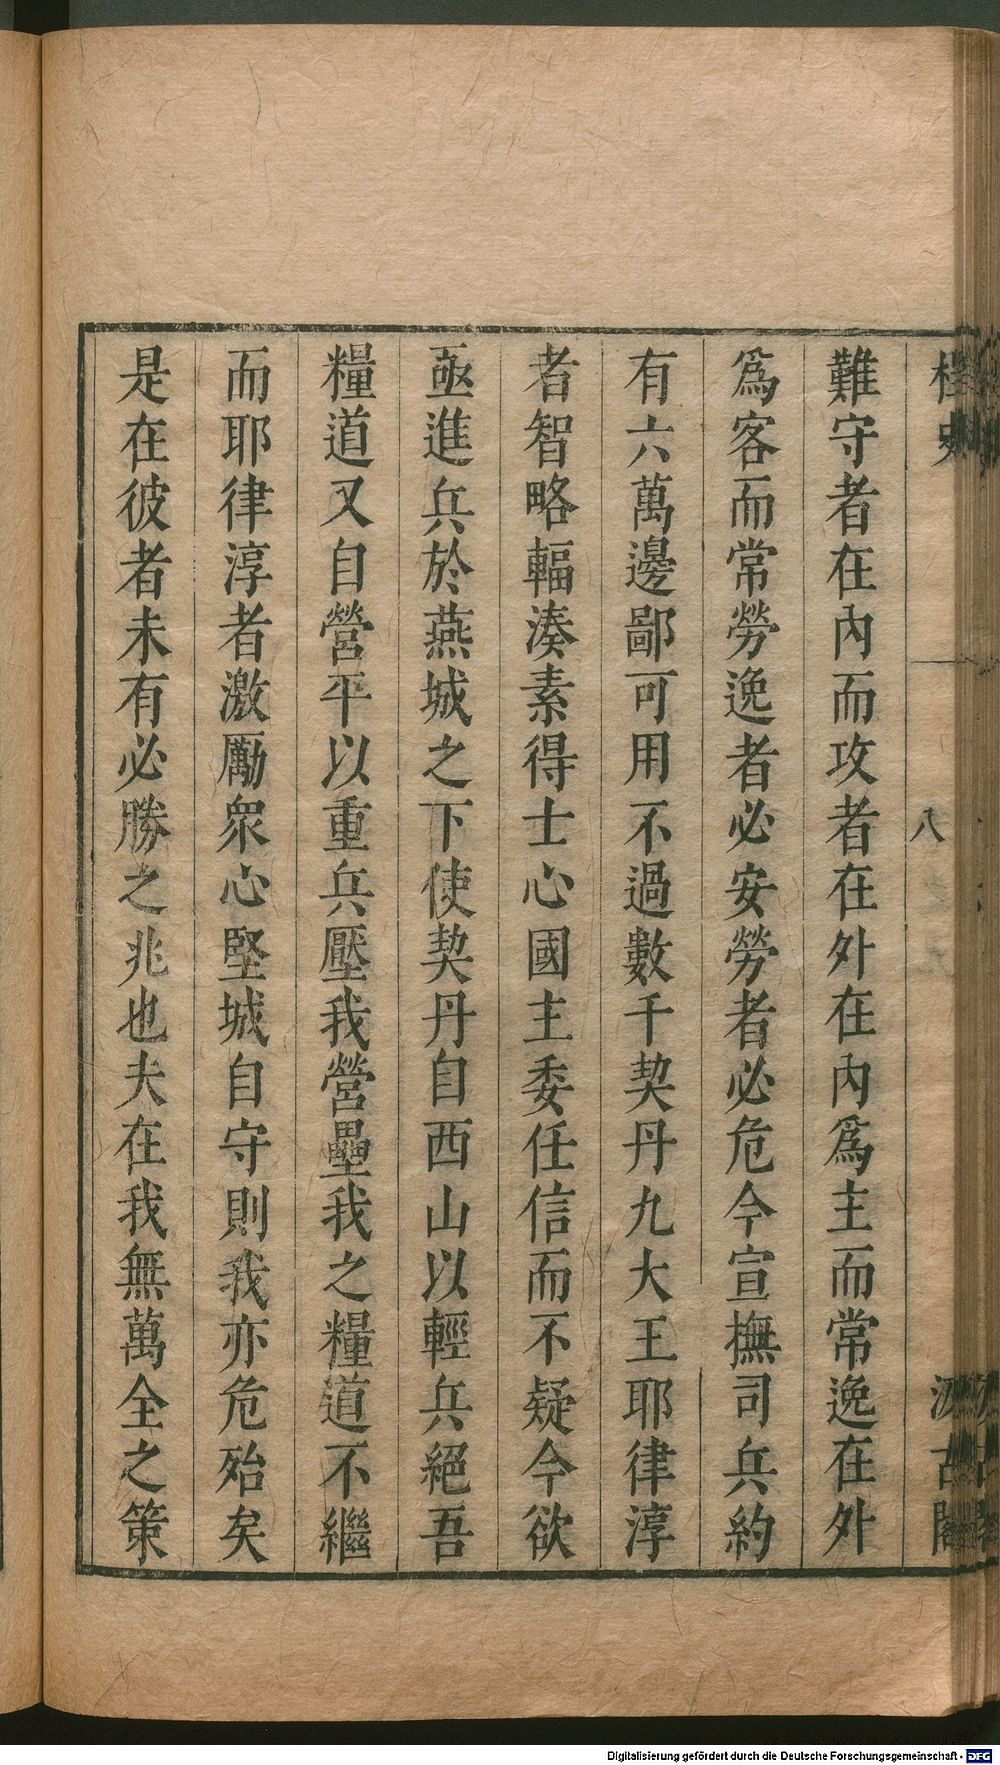 桯史
八
汲古閣
難守者在內而攻者在外在內爲主而常逸在外
爲客而常勞逸者必安勞者必危今宣撫司兵約
有六萬邊鄙可用不過數千契丹九大王耶律淳
者智略輻湊素得士心國主委任信而不疑今欲
亟進兵於燕城之下使契丹自西山以輕兵絕吾
糧道又自營平以重兵壓我營壘我之糧道不繼
而耶律淳者激厲衆心堅城自守則我亦危殆矣
是在彼者未有必勝之兆也夫在我無萬全之策
Digitalisierung gefördert durch die Deutsche Forschungsgemeinschaft - DFG